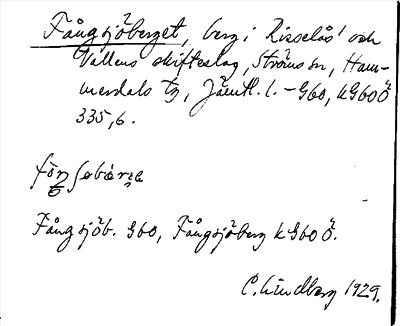 Fångsjöberget, berg i Risselås' och
Vallens skifteslag, Ströms sn, Ham-
merdals tg, Jämtl. l. – G60, kG60Ö
335,6.
Fångsjöb. G60, Fångsjöberg kG60Ö.
C. Lindberg 1929.